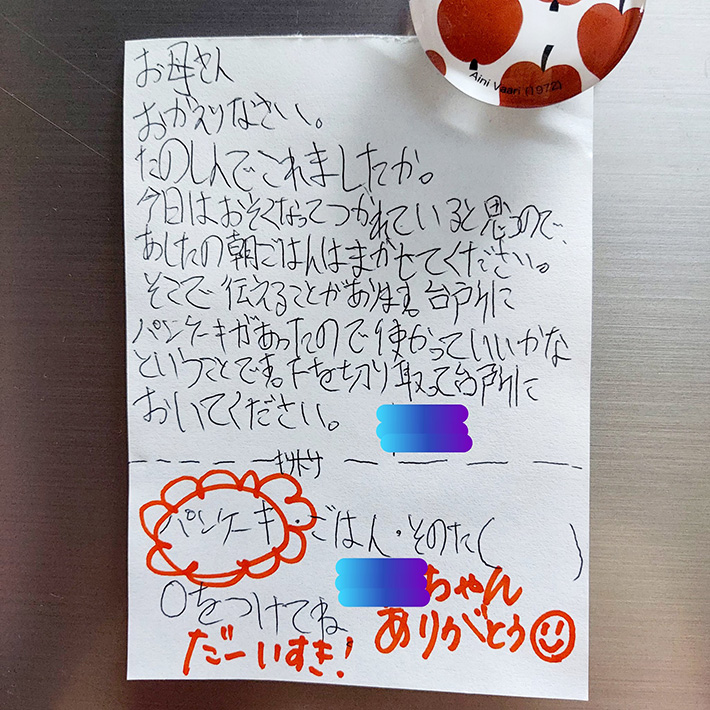 Aini Vaari (1972)
お母さん
おかえりなさい。
たのしんでこれましたか。
今日はおそくなってつかれていると思うので、
あしたの朝ごはんはまかせてください。
そこで伝えることがあります。台所に
パンケーキがあったので使かっていいかな
ということです。下を切り取って台所に
おいてください。
キリトリ
パンケーキ・ごはん・そのた( )
○をつけてね
ちゃん
ありがとう
だーいすき!